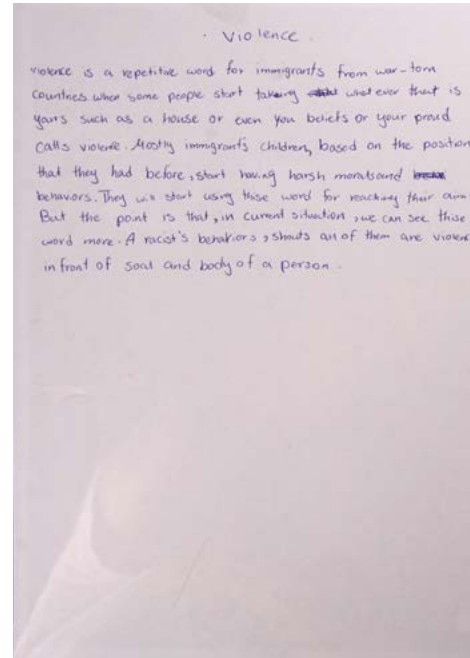 . Violence .
violence is a repetitive word for immigrants from war-torn
countries when some people start taking what ever that is
yours such as a house or even you beliefs or your proud
calls violence. Mostly immigrants children, based on the position
that they had before, start having harsh morals and
behaviors. They will start using thise word for reaching their aim
But the point is that, in current situation, we can see thise
word more. A racist's behaviors, shouts all of them are violence
in front of soal and body of a person.